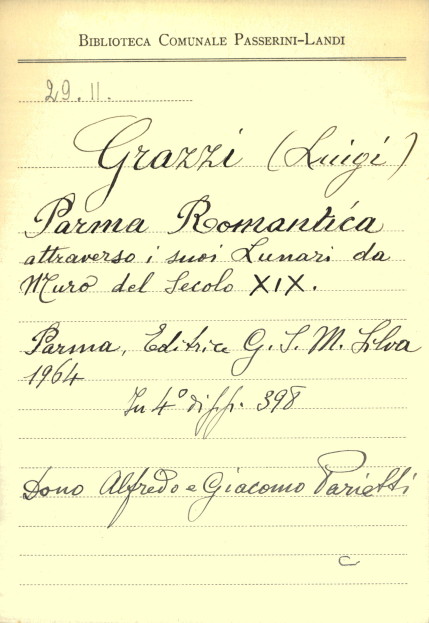 BIBLIOTECA COMUNALE PASSERINI-LANDI
29. II.
Grazzi (Luigi)
Parma Romantica
attraverso i suoi Lunari da
Muro del Secolo XIX.
Parma, Editrice G. S. M. Silva
1964
In 4° di pp. 398
Dono Alfredo e Giacomo Parietti
C